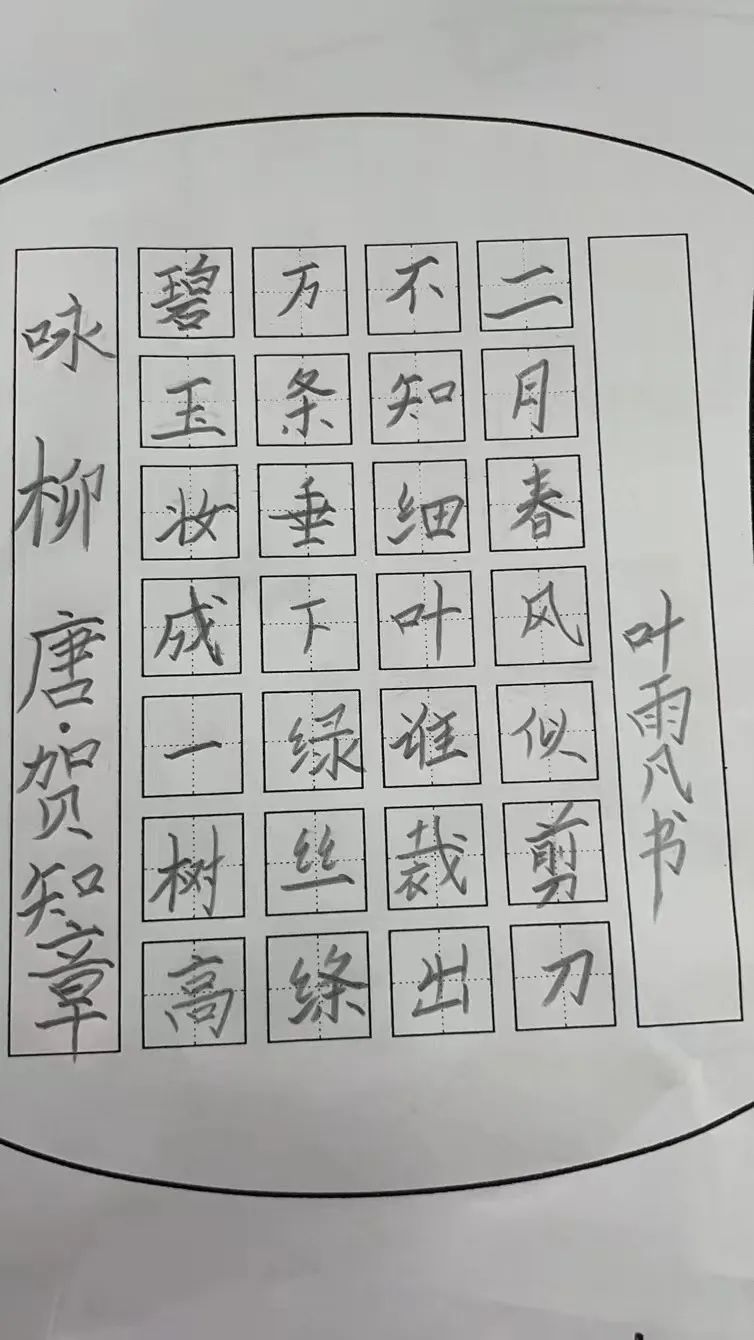 咏柳 唐·贺知章
碧玉妆成一树高
万条垂下绿丝绦
不知细叶谁裁出
二月春风似剪刀
叶雨凡书